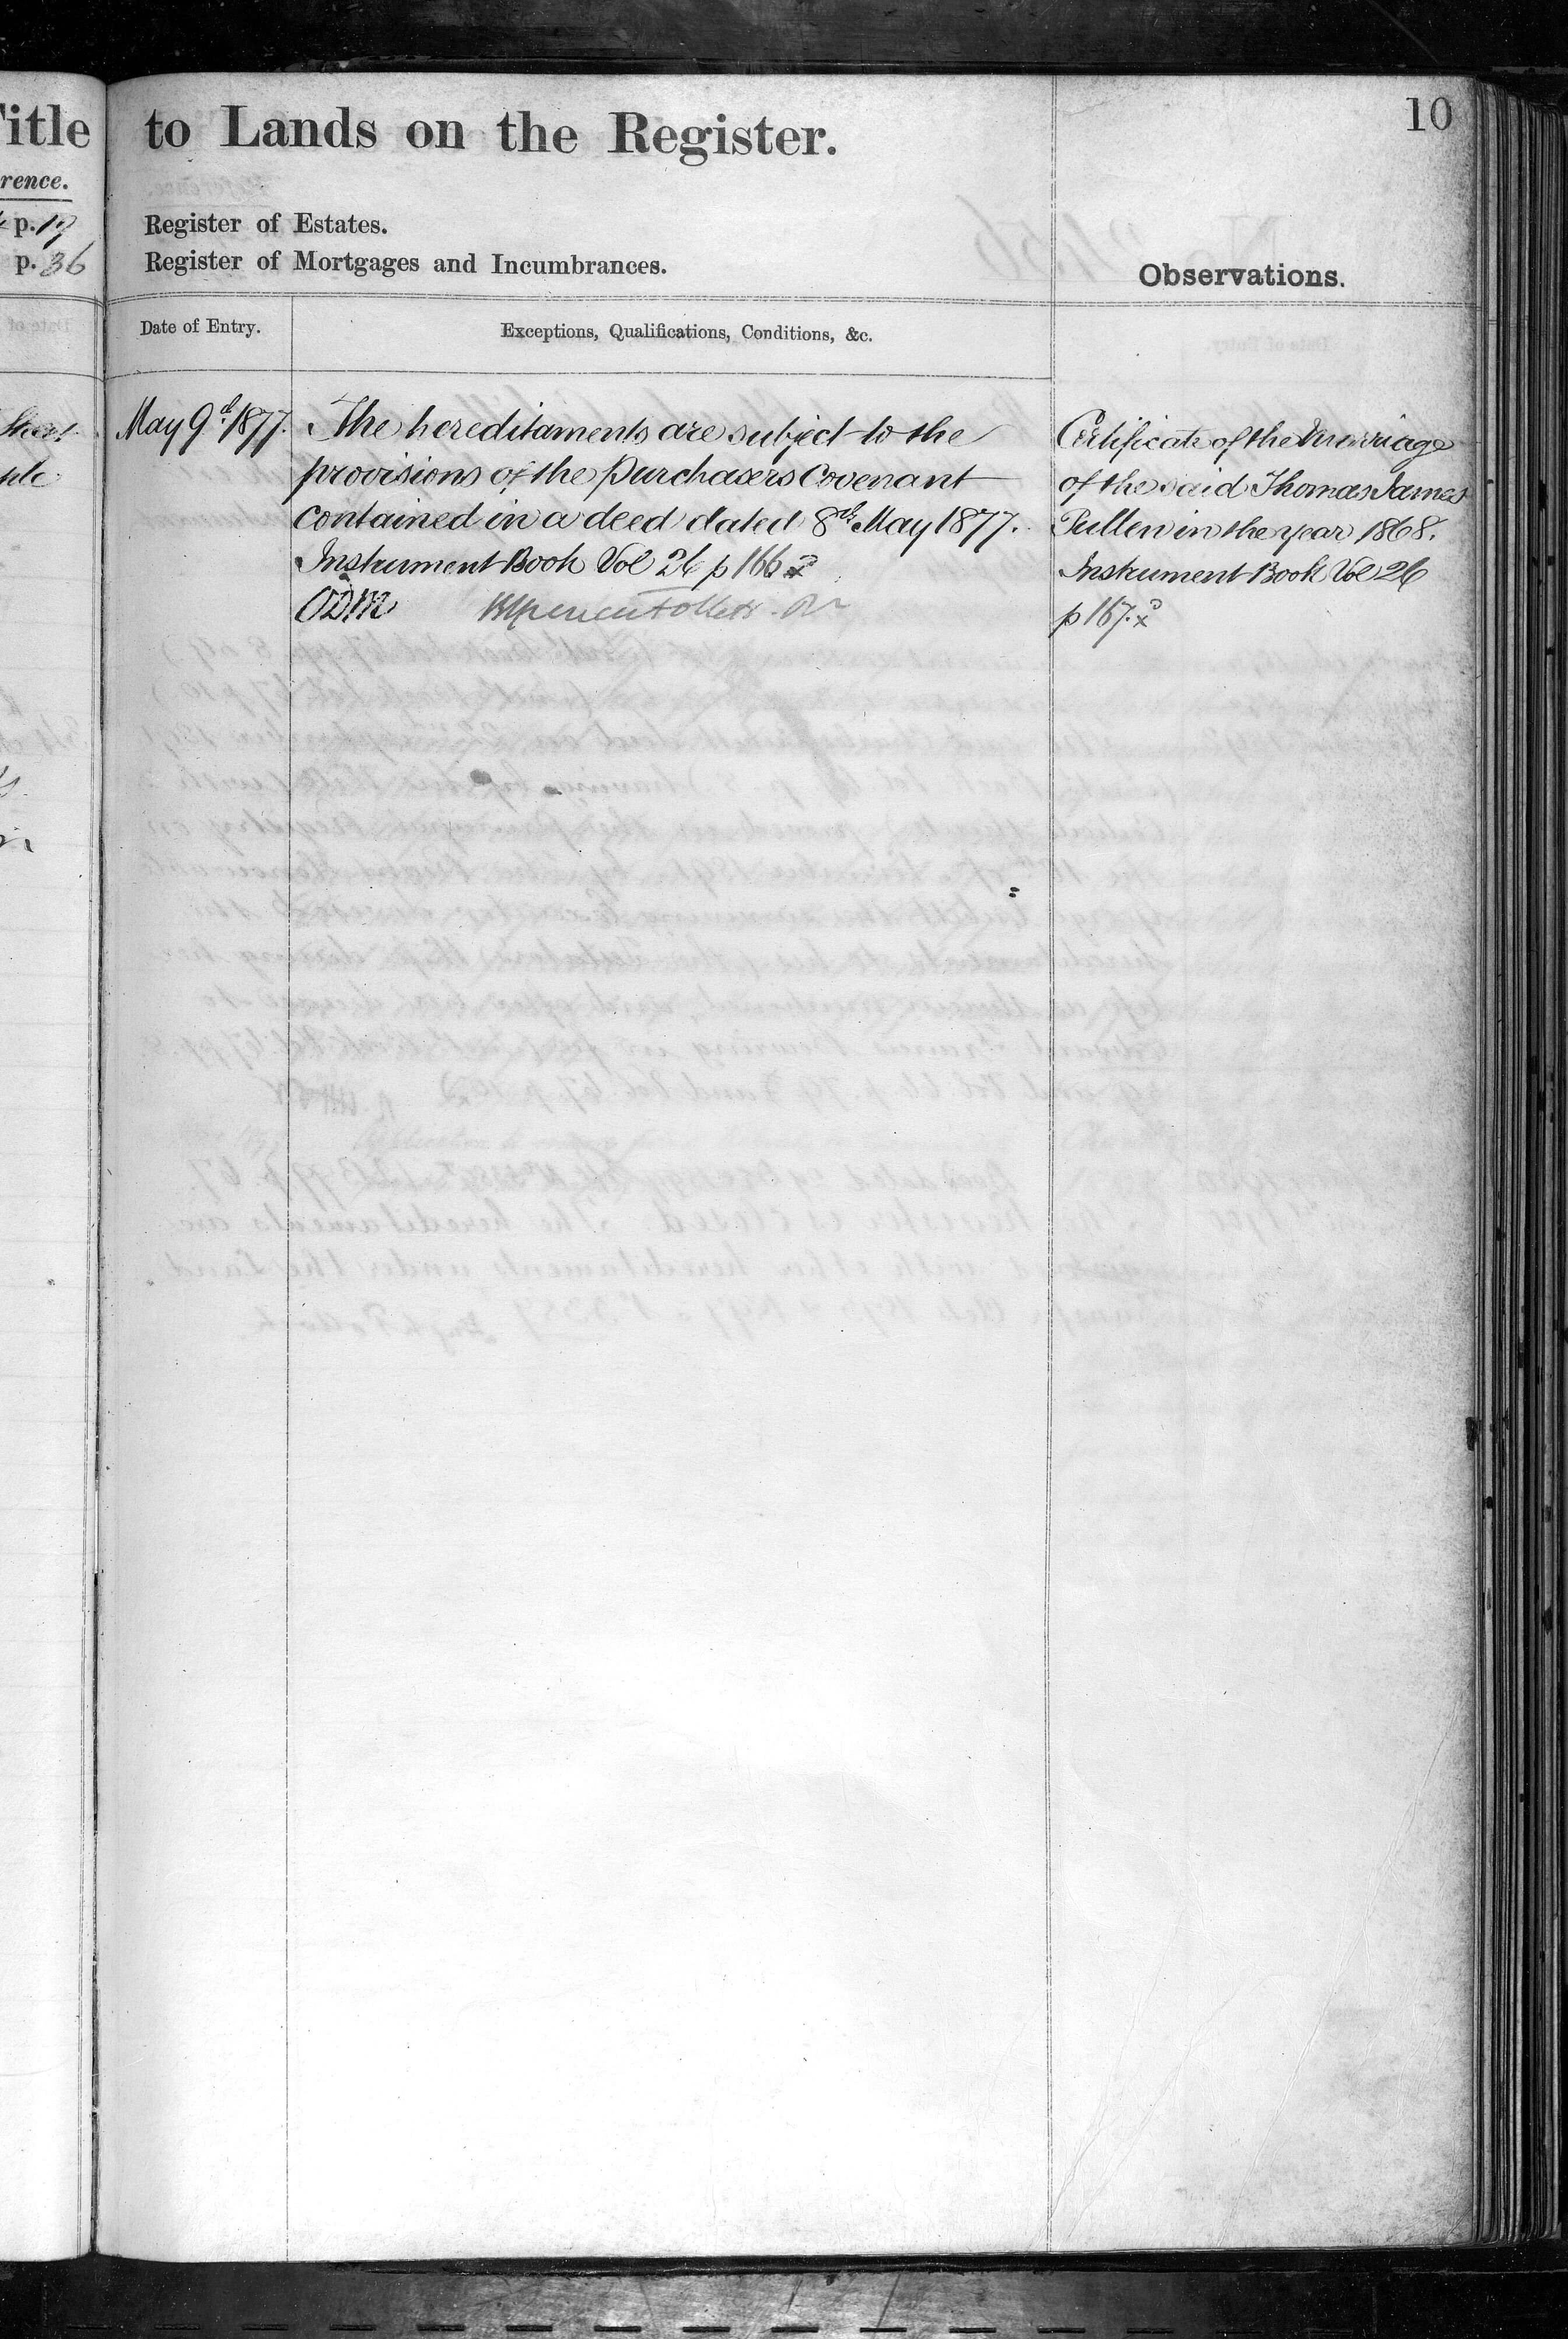 itle
rence.
p. 19
p. 36
to Lands on the Register.
10
Register of Estates.
Register of Mortgages and Incumbrances.
Observations.
Date of Entry.
Exceptions, Qualifications, Conditions, &c.
May 9th 1877.
The hereditaments are subject to the
provisions of the Purchasers Covenant
contained in a deed dated 8th May 1877.
Instrument Book Vol 26 p 166
ODM
Certificate of the Marriage
of the said Thomas James
Pullen in the year 1868.
Instrument Book Vol 26
p 167.